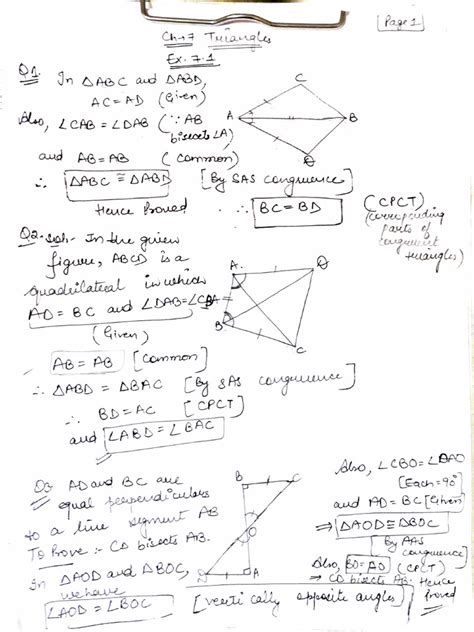 Page 1
Ch→7 Triangles
Ex. 7.1
Q1. In ΔABC and ΔABD,
AC = AD (Given)
Also, ∠CAB = ∠DAB (∵ AB bisects ∠A)
and AB = AB (Common)
∴ ΔABC ≅ ΔABD [By SAS congruence]
Hence Proved ∴ BC = BD (CPCT)
(corresponding parts of congruent triangles)
A
B
C
D
Q2. Soln- In the given
figure, ABCD is a
quadrilateral in which
AD = BC and ∠DAB = ∠CBA
(Given)
AB = AB [Common]
∴ ΔABD = ΔBAC [By SAS congruence]
∴ BD = AC [CPCT]
and ∠ABD = ∠BAC
A
D
B
C
Q3 AD and BC are
equal perpendiculars
to a line segment AB
To Prove :- CD bisects AB.
In ΔAOD and ΔBOC,
we have
∠AOD = ∠BOC [vertically opposite angles]
B
C
O
D
A
Also, ∠CBO = ∠DAO
[Each = 90°
and AD = BC [Given
⇒ ΔAOD ≅ ΔBOC
[By AAS
congruence]
Also, BO = AO (CPCT)
⇒ CD bisects AB. Hence
Proved